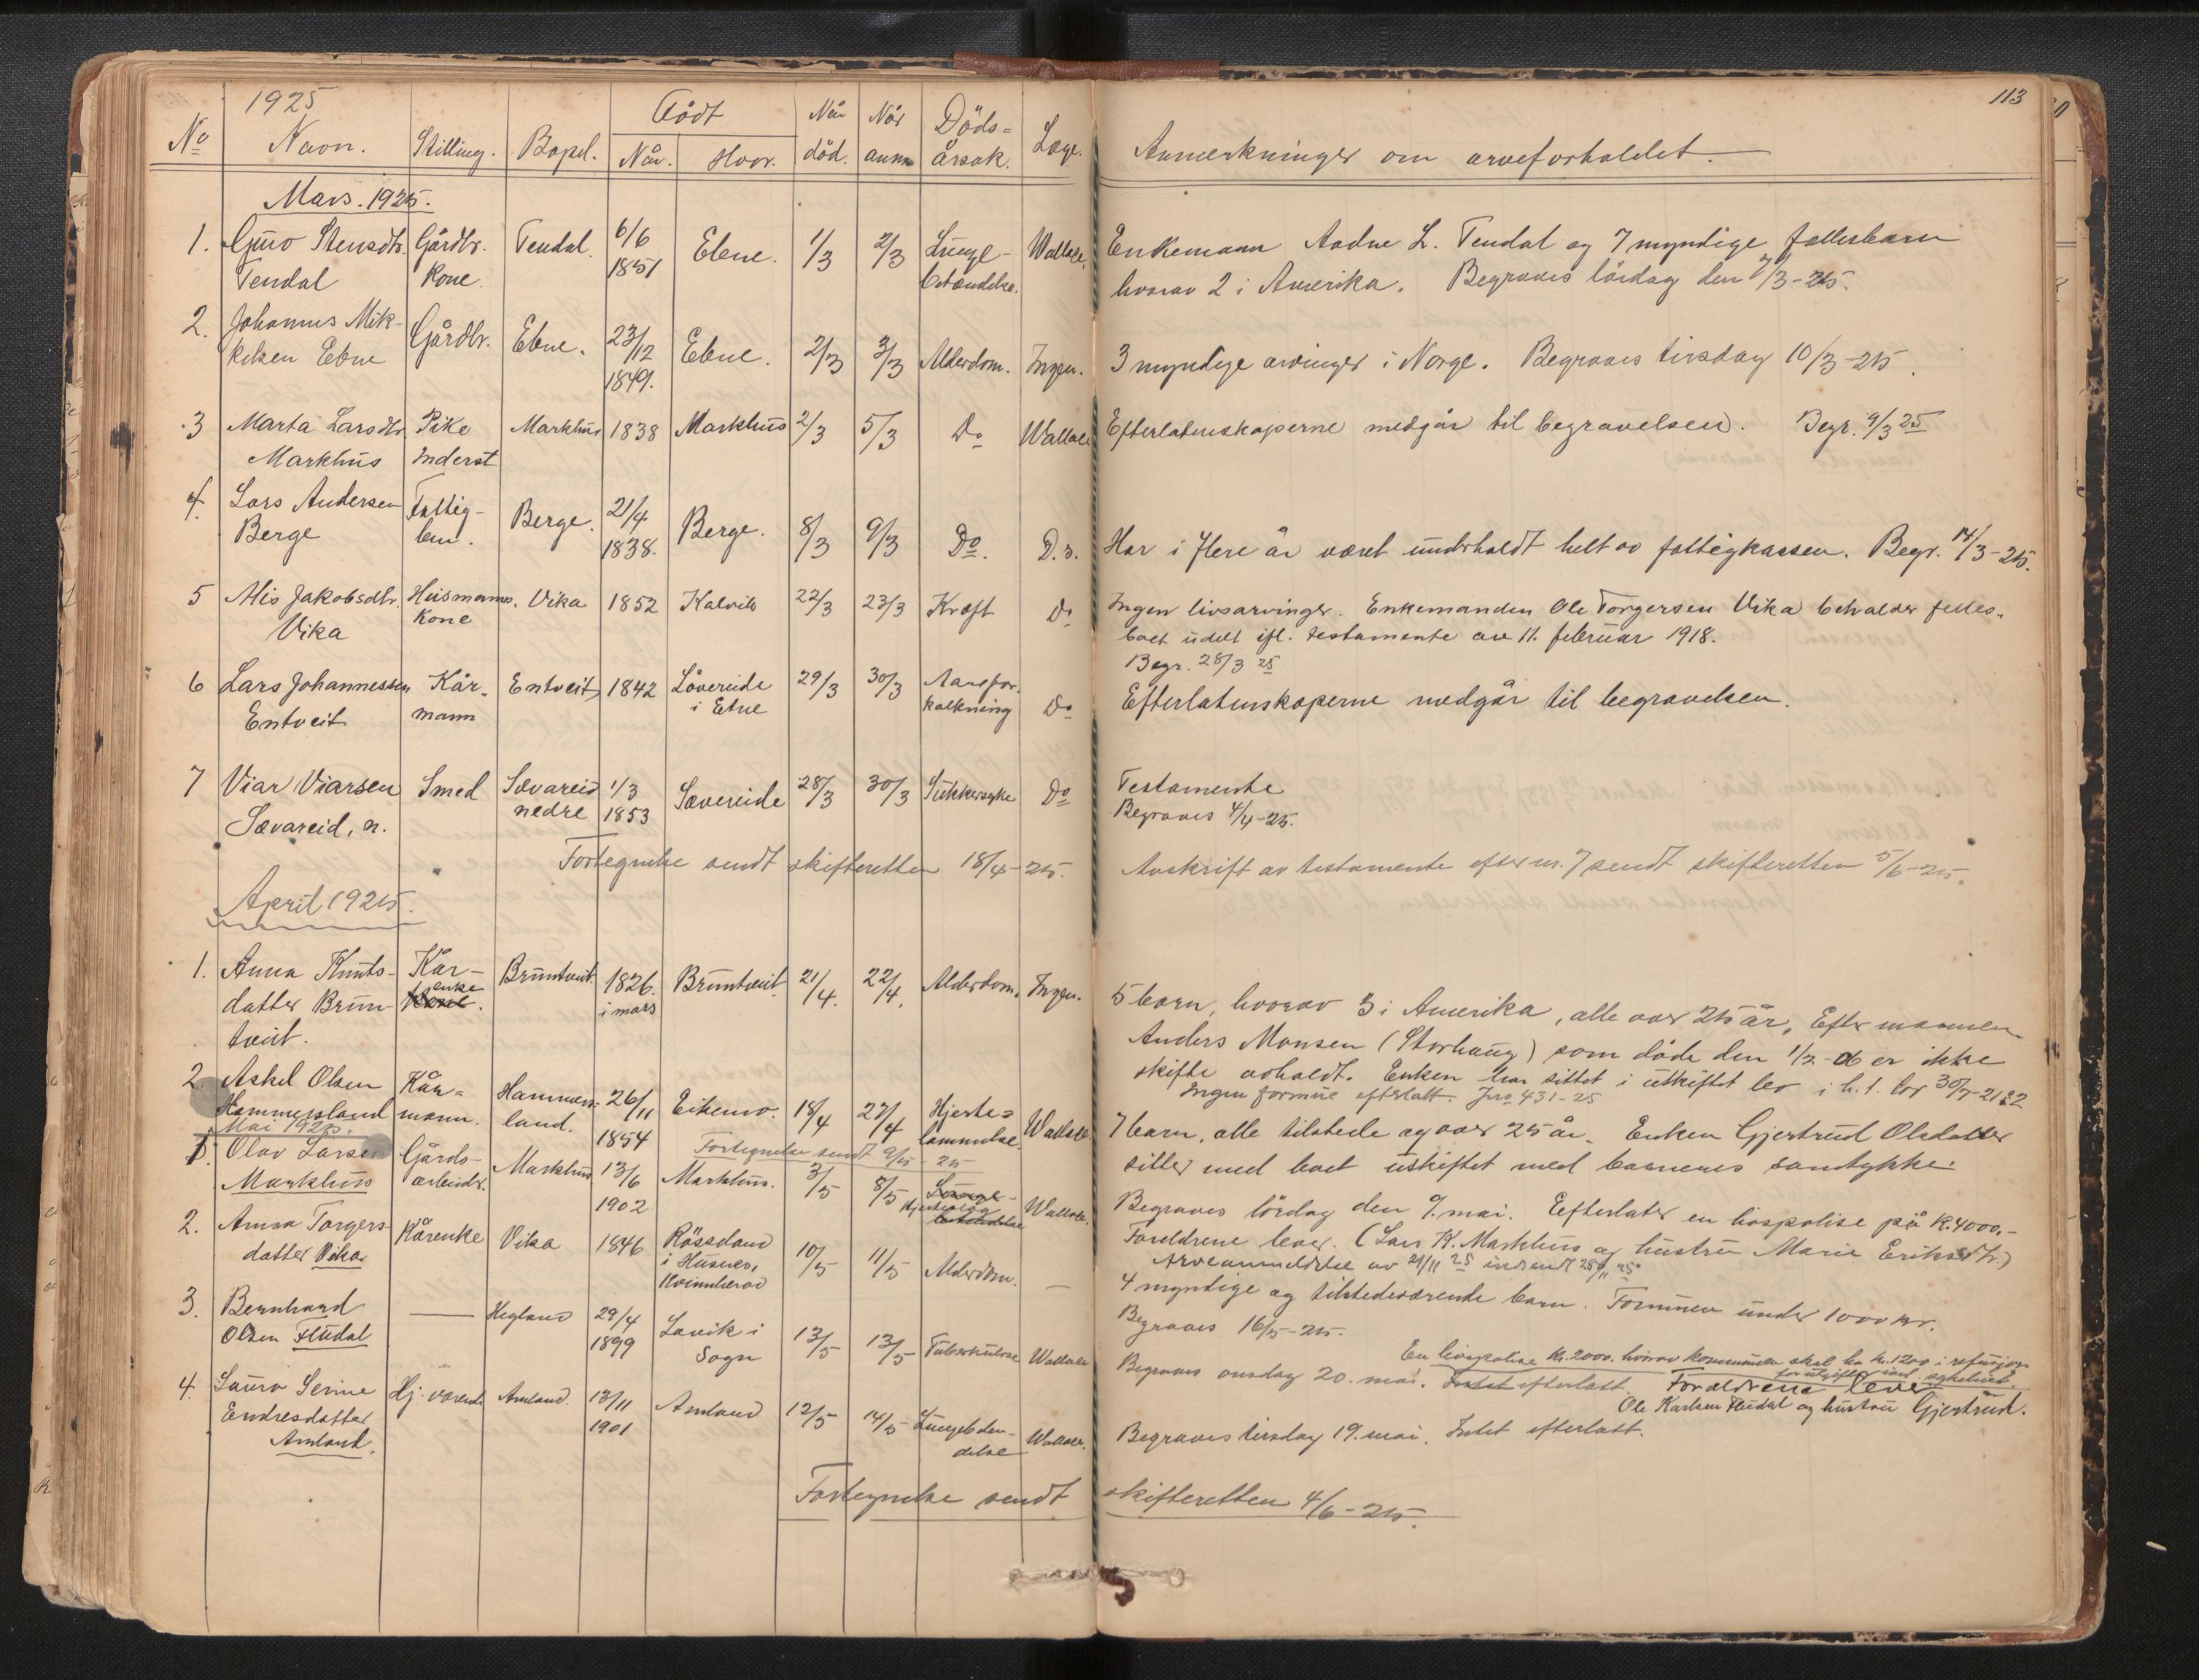 113
1925
No Navn. Stilling. Bopel. Født Når. Hvor. Når død. Når anm. Døds-årsak. Læge. Anmerkninger om arveforholdet.
Mars. 1925.
1. Guro Stensdtr. Gårdbr. Tendal. 6/6 Ebne. 1/3 2/3 Lunge- Wallace. Enkemann Aadne L. Tendal og 7 myndige fellesbarn
Tendal kone. 1851 betendelse. hvorav 2 i Amerika. Begraves lördag den 7/3-25.
2. Johannes Mik- Gårdbr. Ebne. 23/12 Ebne. 2/3 3/3 Alderdom. Ingen. 3 myndige arvinger i Norge. Begraves tirsdag 10/3-25.
kelsen Ebne 1849.
3 Marta Larsdtr. Pike Markhus 1838 Markhus 2/3 5/3 Do Wallace Efterlatenskaperne medgår til begravelsen. Begr. 9/3 25
Markhus Inderst
4. Lars Andersen Fattig- Berge. 21/4 Berge. 8/3 9/3 Do. D.o. Har i flere år været underholdt helt av fattigkassen. Begr. 14/3-25.
Berge lem. 1838.
5 Alis Jakobsdtr. Husmanns. Vika 1852 Kalvik 22/3 23/3 Kreft Do Ingen livsarvinger. Enkemanden Ole Torgersen Vika beholder felles-
Vika kone boet udelt ifl. testamente av 11. februar 1918.
Begr. 28/3 25
6 Lars Johannessen Kår- Entveit 1842 Løvereide 29/3 30/3 Aarefor- Do Efterlatenskaperne medgår til begravelsen.
Entveit mann i Etne kalkning
7 Viar Viarsen Smed Sævareid 1/3 Sævereide 28/3 30/3 Sukkersyke Do Testamente
Sævareid, n. nedre 1853 Begraves 4/4-25.
Fortegnelse sendt skifteretten 18/4-25. Avskrift av testamente efter nr. 7 sendt skifteretten 5/6-25.
April 1925.
1. Anna Knuts- Kår- Bruntveit 1826. Bruntveit 21/4. 22/4. Alderdom. Ingen. 5 barn, hvorav 3 i Amerika, alle over 25 år. Efter mannen
datter Brun- enke kone. i mars Anders Monsen (Storhaug) som døde den 1/2-06 er ikke
tveit. skifte avholdt. Enken har sittet i uskiftet bo i h. t. lov 30/7-21 § 2
Ingen formue efterlatt. Jnr 431-25
2. Askel Olsen Kår- Hammers- 26/11 Eikemo. 18/4 27/4 Hjerte- Wallace 7 barn, alle tilstede og over 25 år. Enken Gjertrud Olsdatter
Hammersland mann. land. 1854 lammelse. sitter med boet uskiftet med barnenes samtykke.
Mai 1925. Fortegnelse sendt 9/5-25
1. Olav Larsen Gårds- Markhus 13/6 Markhus. 3/5 8/5 Lunge- Wallace. Begraves lördag den 9. mai. Efterlater en livspolise på kr. 4000.-
Markhus arbeider. 1902 Hjerteslag betendelse Foreldrene lever. (Lars K. Markhus og hustru Marie Eriksdtr.)
Arveanmeldelse av 21/11 25 indsendt 28/11 25.
2. Anna Torgers- Kårenke Vika 1846 Røssland 10/5 11/5 Alderdom. — 4 myndige og tilstedeværende barn. Formuen under 1000 kr.
datter Vika. i Husnes, Kvinnherad Begraves 16/5-25.
3. Bernhard — Hegland 29/4 Lavik i 13/5 13/5 Tuberkulose Wallace En livspolise kr. 2000. hvorav kommunen skal ha kr. 1200 i refusjon
for utgifter ved sykehus.
Olsen Fludal 1899 Sogn Begraves onsdag 20. mai. Intet efterlatt. Foreldrene lever
Ole Karlsen Fludal og hustru Gjertrud.
4. Laura Serine Hj. værende Amland. 13/11 Amland 12/5 14/5 Lungebeten- Wallace. Begraves tirsdag 19. mai. Intet efterlatt.
Endresdatter 1901 delse
Amland.
Fortegnelse sendt skifteretten 4/6-25.